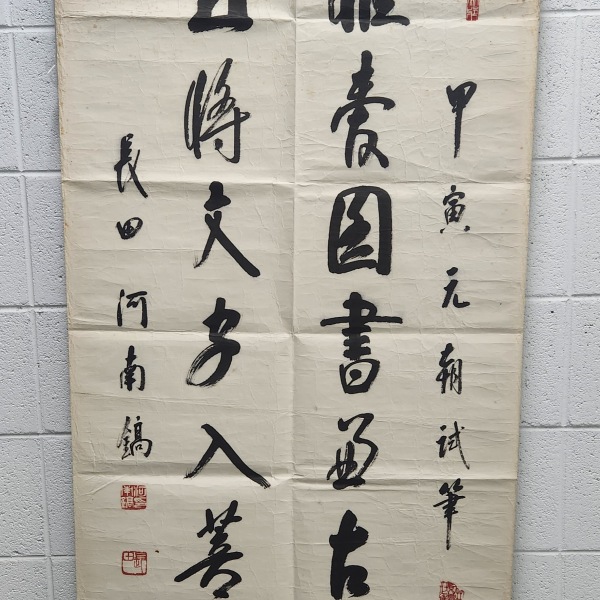 甲寅元朝試筆
愛圖書兼古
將文字入菩
長田河南鎬